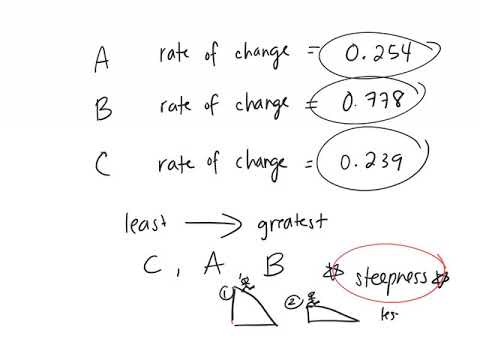 A rate of change = 0.254
B rate of change = 0.778
C rate of change = 0.239
least → greatest
C, A B
steepness
① ②